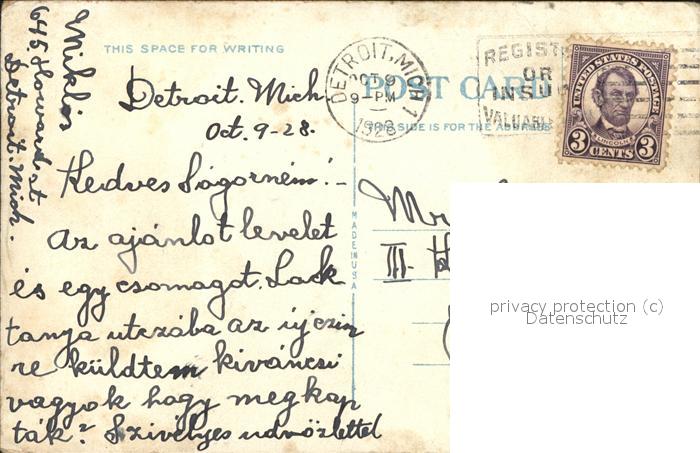 Miklós
645 Howard. st
Detroit. Mich.
THIS SPACE FOR WRITING
POST CARD
THIS SIDE IS FOR THE ADDRESS
DETROIT, MICH 1
OCT 9
9 PM
1928
REGIST
OR
INSU
VALUABLE
UNITED STATES POSTAGE
LINCOLN
3 CENTS 3
Detroit. Mich
Oct. 9-28.
Kedves Ságorném!-
Az ajánlot levelet
és egy csomagot. Lack
tanya utczába az új czim
re küldtem kiváncsi
vagyok hogy megkap
ták? Szivélyes üdvözlettel
MADE IN USA
Mr
III.
privacy protection (c)
Datenschutz